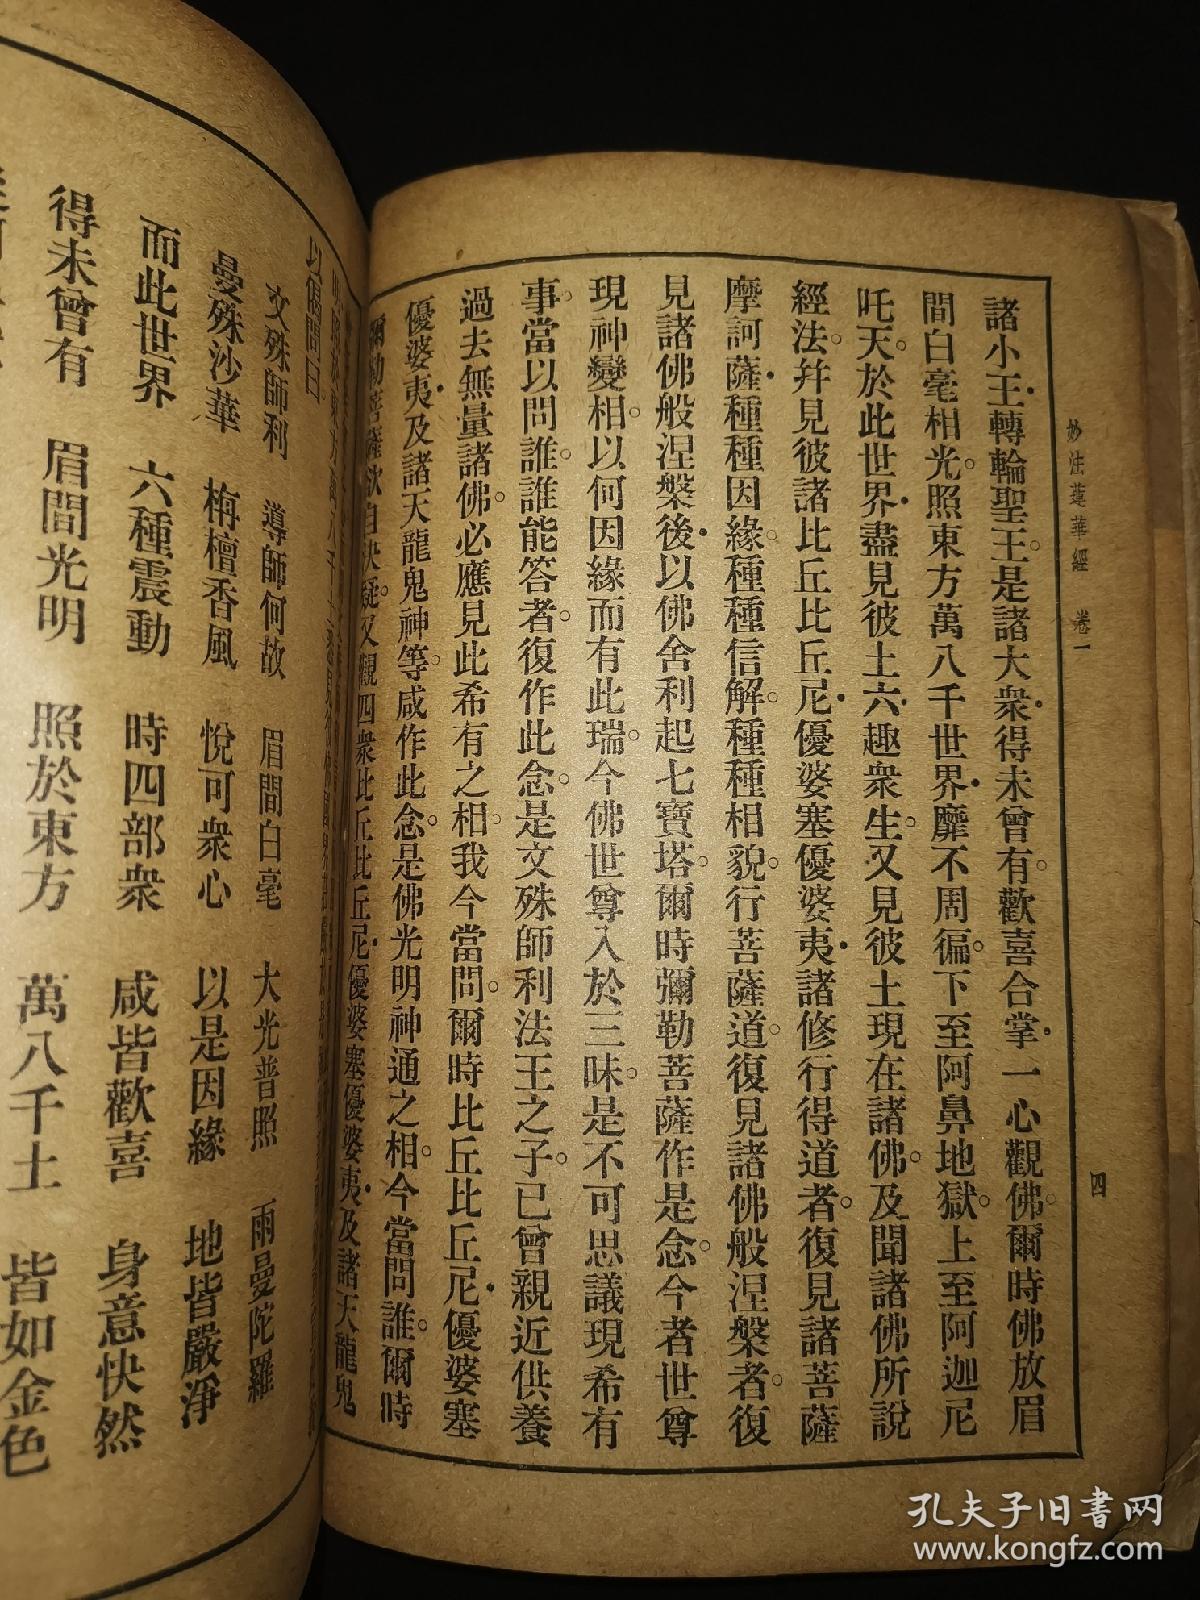 妙法蓮華經 卷一
四
諸小王轉輪聖王。是諸大衆得未曾有。歡喜合掌一心觀佛。爾時佛放眉
間白毫相光照東方萬八千世界靡不周徧。下至阿鼻地獄。上至阿迦尼
吒天。於此世界盡見彼土六趣衆生。又見彼土現在諸佛。及聞諸佛所說
經法幷見彼諸比丘比丘尼優婆塞優婆夷諸修行得道者。復見諸菩薩
摩訶薩種種因緣。種種信解。種種相貌。行菩薩道。復見諸佛般涅槃者。復
見諸佛般涅槃後以佛舍利起七寶塔。爾時彌勒菩薩作是念。今者世尊
現神變相。以何因緣而有此瑞。今佛世尊入於三昧。是不可思議現希有
事。當以問誰。誰能答者。復作此念。是文殊師利法王之子。已曾親近供養
過去無量諸佛。必應見此希有之相。我今當問。爾時比丘比丘尼優婆塞
優婆夷及諸天龍鬼神等。咸作此念。是佛光明神通之相。今當問誰。爾時
彌勒菩薩欲自決疑。又觀四衆比丘比丘尼優婆塞優婆夷及諸天龍鬼
以偈問曰
文殊師利 導師何故 眉間白毫 大光普照 雨曼陀羅
曼殊沙華 栴檀香風 悅可衆心 以是因緣 地皆嚴淨
而此世界 六種震動 時四部衆 咸皆歡喜 身意快然
得未曾有 眉間光明 照於東方 萬八千土 皆如金色
孔夫子旧书网
www.kongfz.com